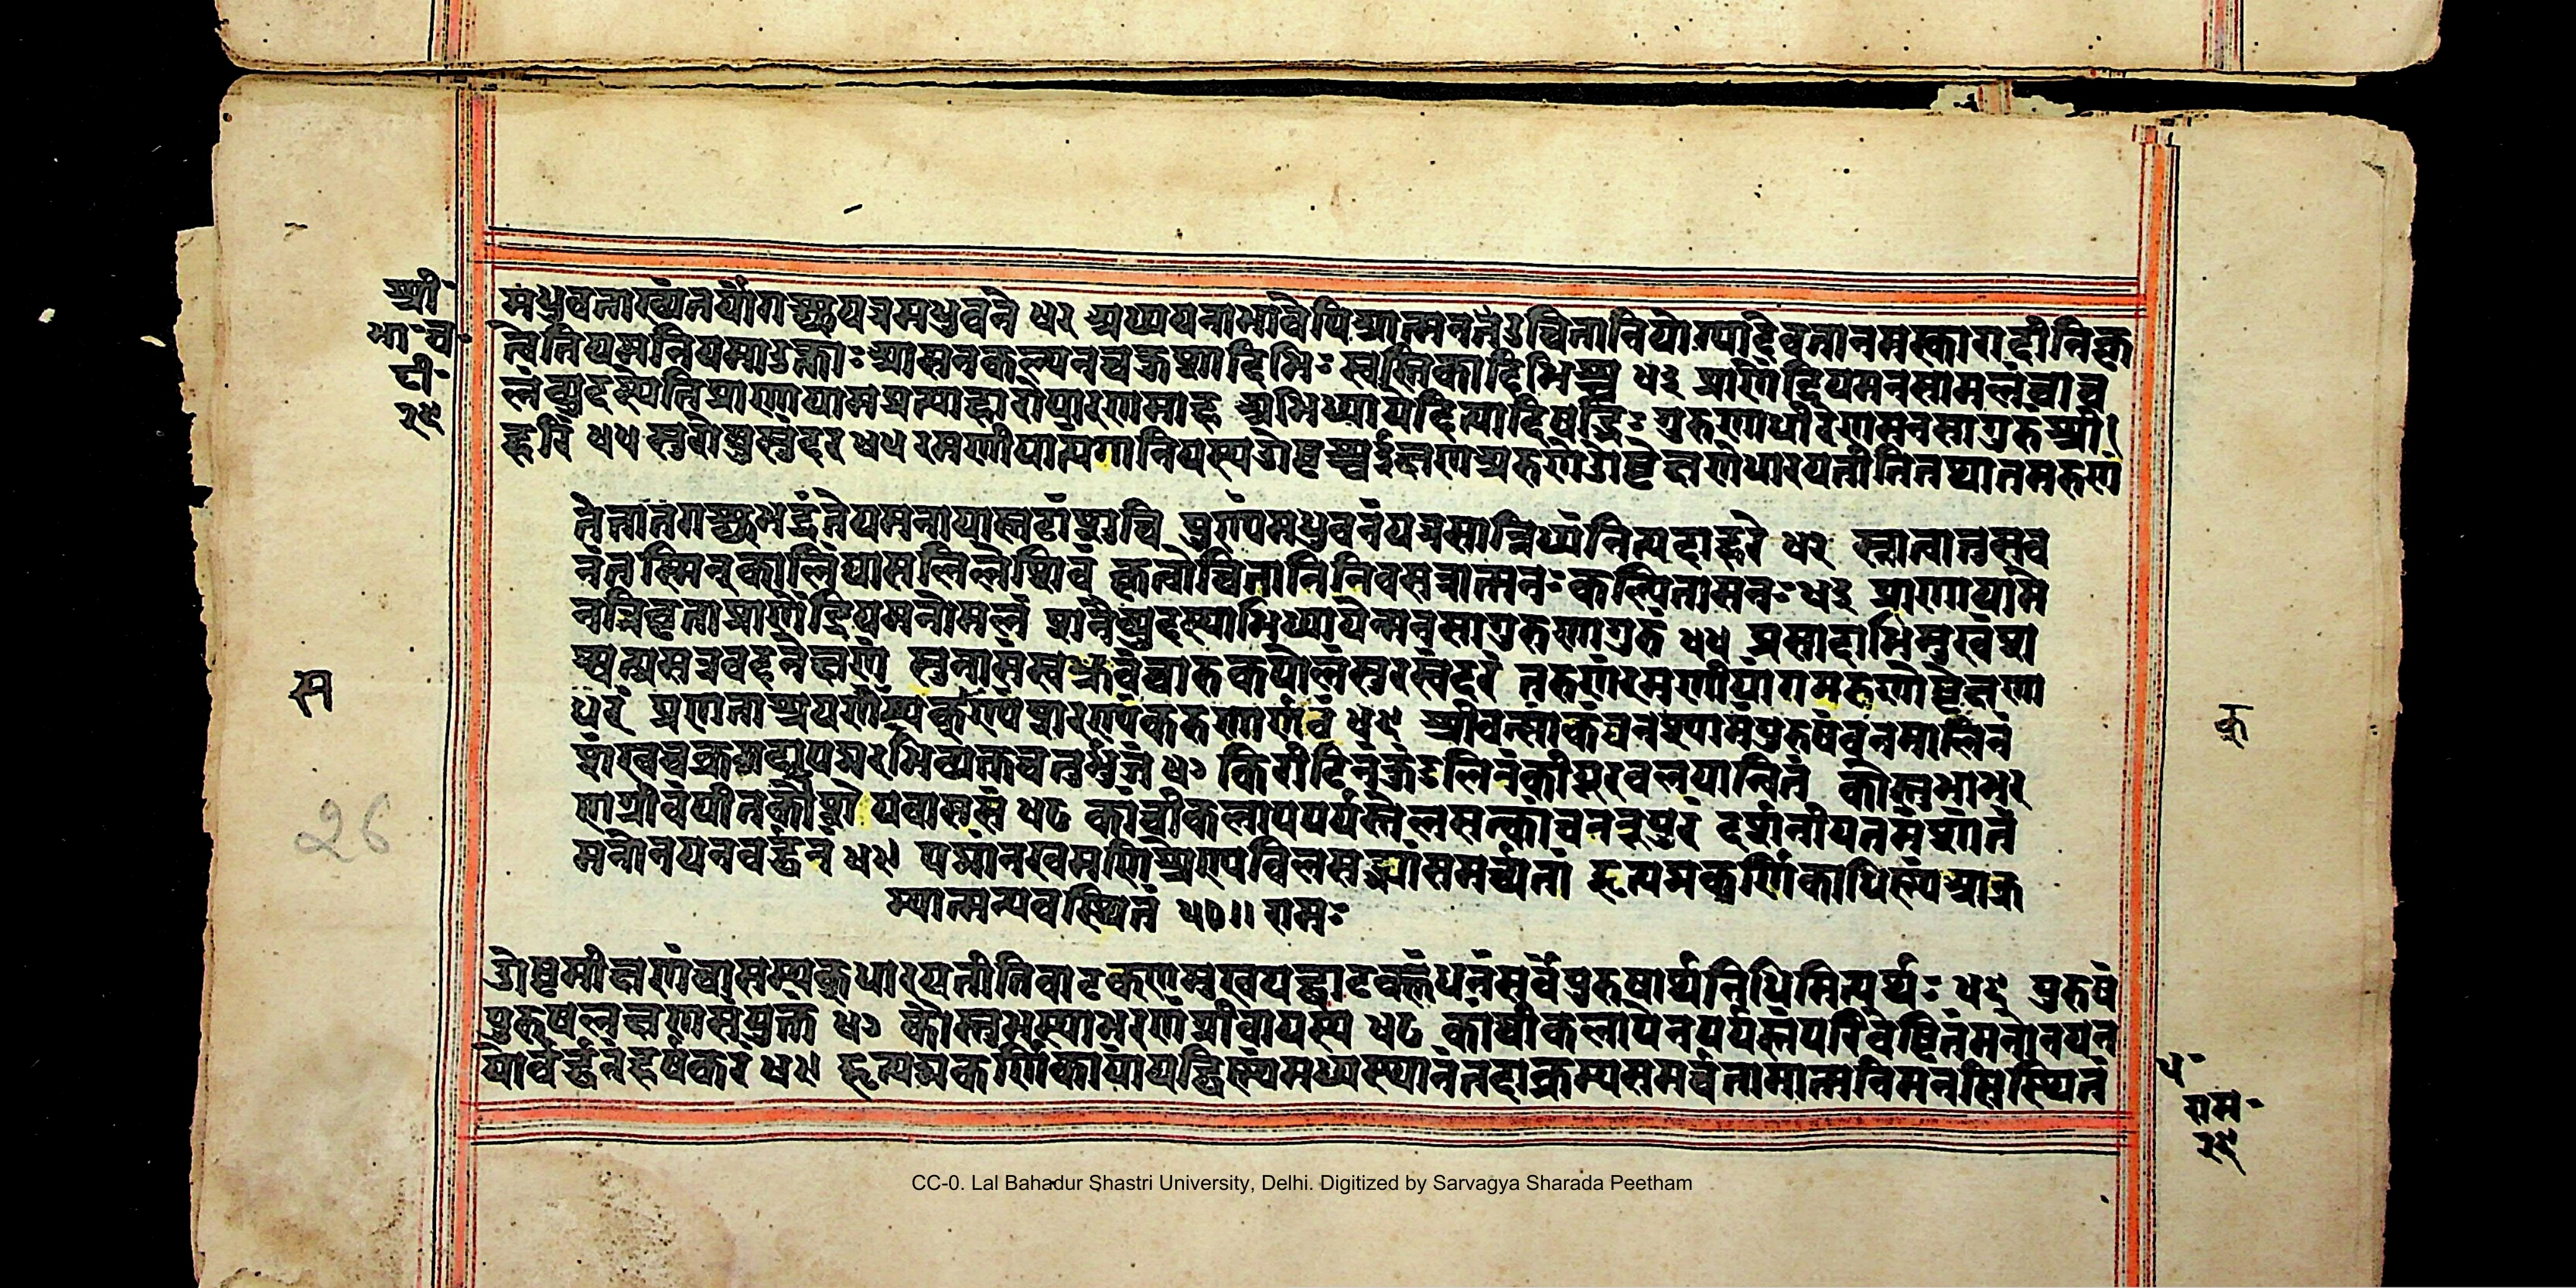 श्री
भा॰ च॰
टी॰
२६
मधुवनाख्यंनयांगच्छयत्रमधुवने ४२ अध्ययनाभावेपिआत्मनउचितानियोग्यादेवतानमस्कारादीनिकृ
त्वेतियमनियमाउक्ताः आसनकल्पनंचक्रुशादिभिः स्वस्तिकादिभिश्च ४३ प्राणेंद्रियमनसामलंचांच
ल्यंव्युदस्येतिप्राणायामप्रत्याहारौधारणामाह अभिध्यायेदित्यादिषड्भिः गुरुणाधीरेणमनसागुरुंश्री
हरिं ४४ सुरेषुसुंदरं ४५ रमणीयान्यंगानियस्यओष्ठश्चईक्षणेचअरुणेओष्ठेक्षणेधारयतीतितथातमरुणौ
तत्तातगच्छभद्रंतेयमुनायास्तटंशुचि पुण्यंमधुवनंयत्रसान्निध्यंनित्यदाहरेः ४२ स्नात्वानुसव
नंतस्मिन्कालिंद्याःसलिलेशिवे कृत्वोचितानिनिवसन्नात्मनःकल्पितासनः ४३ प्राणायामे
नत्रिवृताप्राणेंद्रियमनोमलं शनैर्व्युदस्याभिध्यायेन्मनसागुरुणागुरुं ४४ प्रसादाभिमुखंश
श्वत्प्रसन्नवदनेक्षणं सुनासंसुभ्रुवंचारुकपोलंसुरसुंदरं तरुणंरमणीयांगमरुणोष्ठेक्षणा
धरं प्रणताश्रयणंनृम्णंशरण्यंकरुणार्णवं ४६ श्रीवत्सांकंघनश्यामंपुरुषंवनमालिनं
शंखचक्रगदापद्मैरभिव्यक्तचतुर्भुजं ४७ किरीटिनंकुंडलिनंकेयूरवलयान्वितं कौस्तुभाभर
णग्रीवंपीतकौशेयवाससं ४८ कांचीकलापपर्यस्तंलसत्कांचननूपुरं दर्शनीयतमंशांतं
मनोनयनवर्द्धनं ४९ पद्भ्यांनखमणिश्रेण्याविलसद्भ्यांसमर्चतां हृत्पद्मकर्णिकाधिष्ण्यमाक्र
म्यात्मन्यवस्थितं ५०॥ रामः
ओष्ठमीक्षणंचासम्यक्धारयतीतिवा
पुरुषार्थनिधिमित्यर्थः ४६ पुरुषं
पुरुषलक्षणसंयुक्तं ४७ कौस्तुभस्याभरणंग्रीवायस्य ४८ कांचीकलापेनपर्यस्तंपरिवेष्टितंमनोनयन
योर्वर्द्धनंहर्षकरं ४९ हृत्पद्मकर्णिकायांयद्धिष्ण्यंमध्यस्थानंतदाक्रम्यसमर्चतामात्मनिमनसिस्थितं
५॰
राम॰
२६
स
क
२६
CC-0. Lal Bahadur Shastri University, Delhi. Digitized by Sarvagya Sharada Peetham